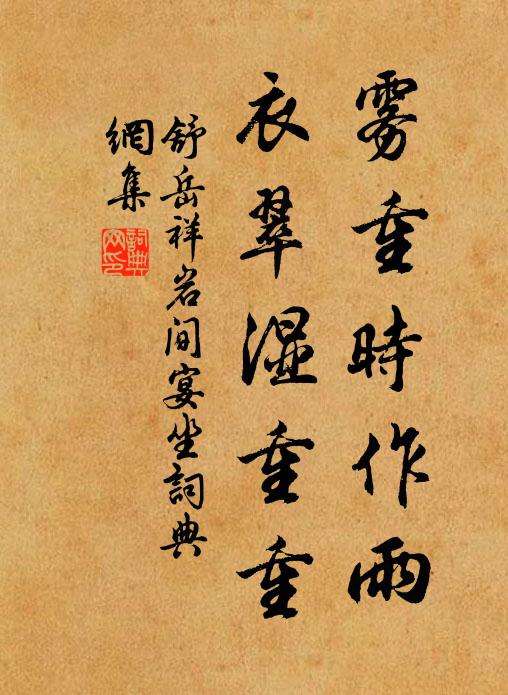 雾重時作雨
衣翠濕重重
舒岳祥岩间宴坐詞典
網集
詞典
网印